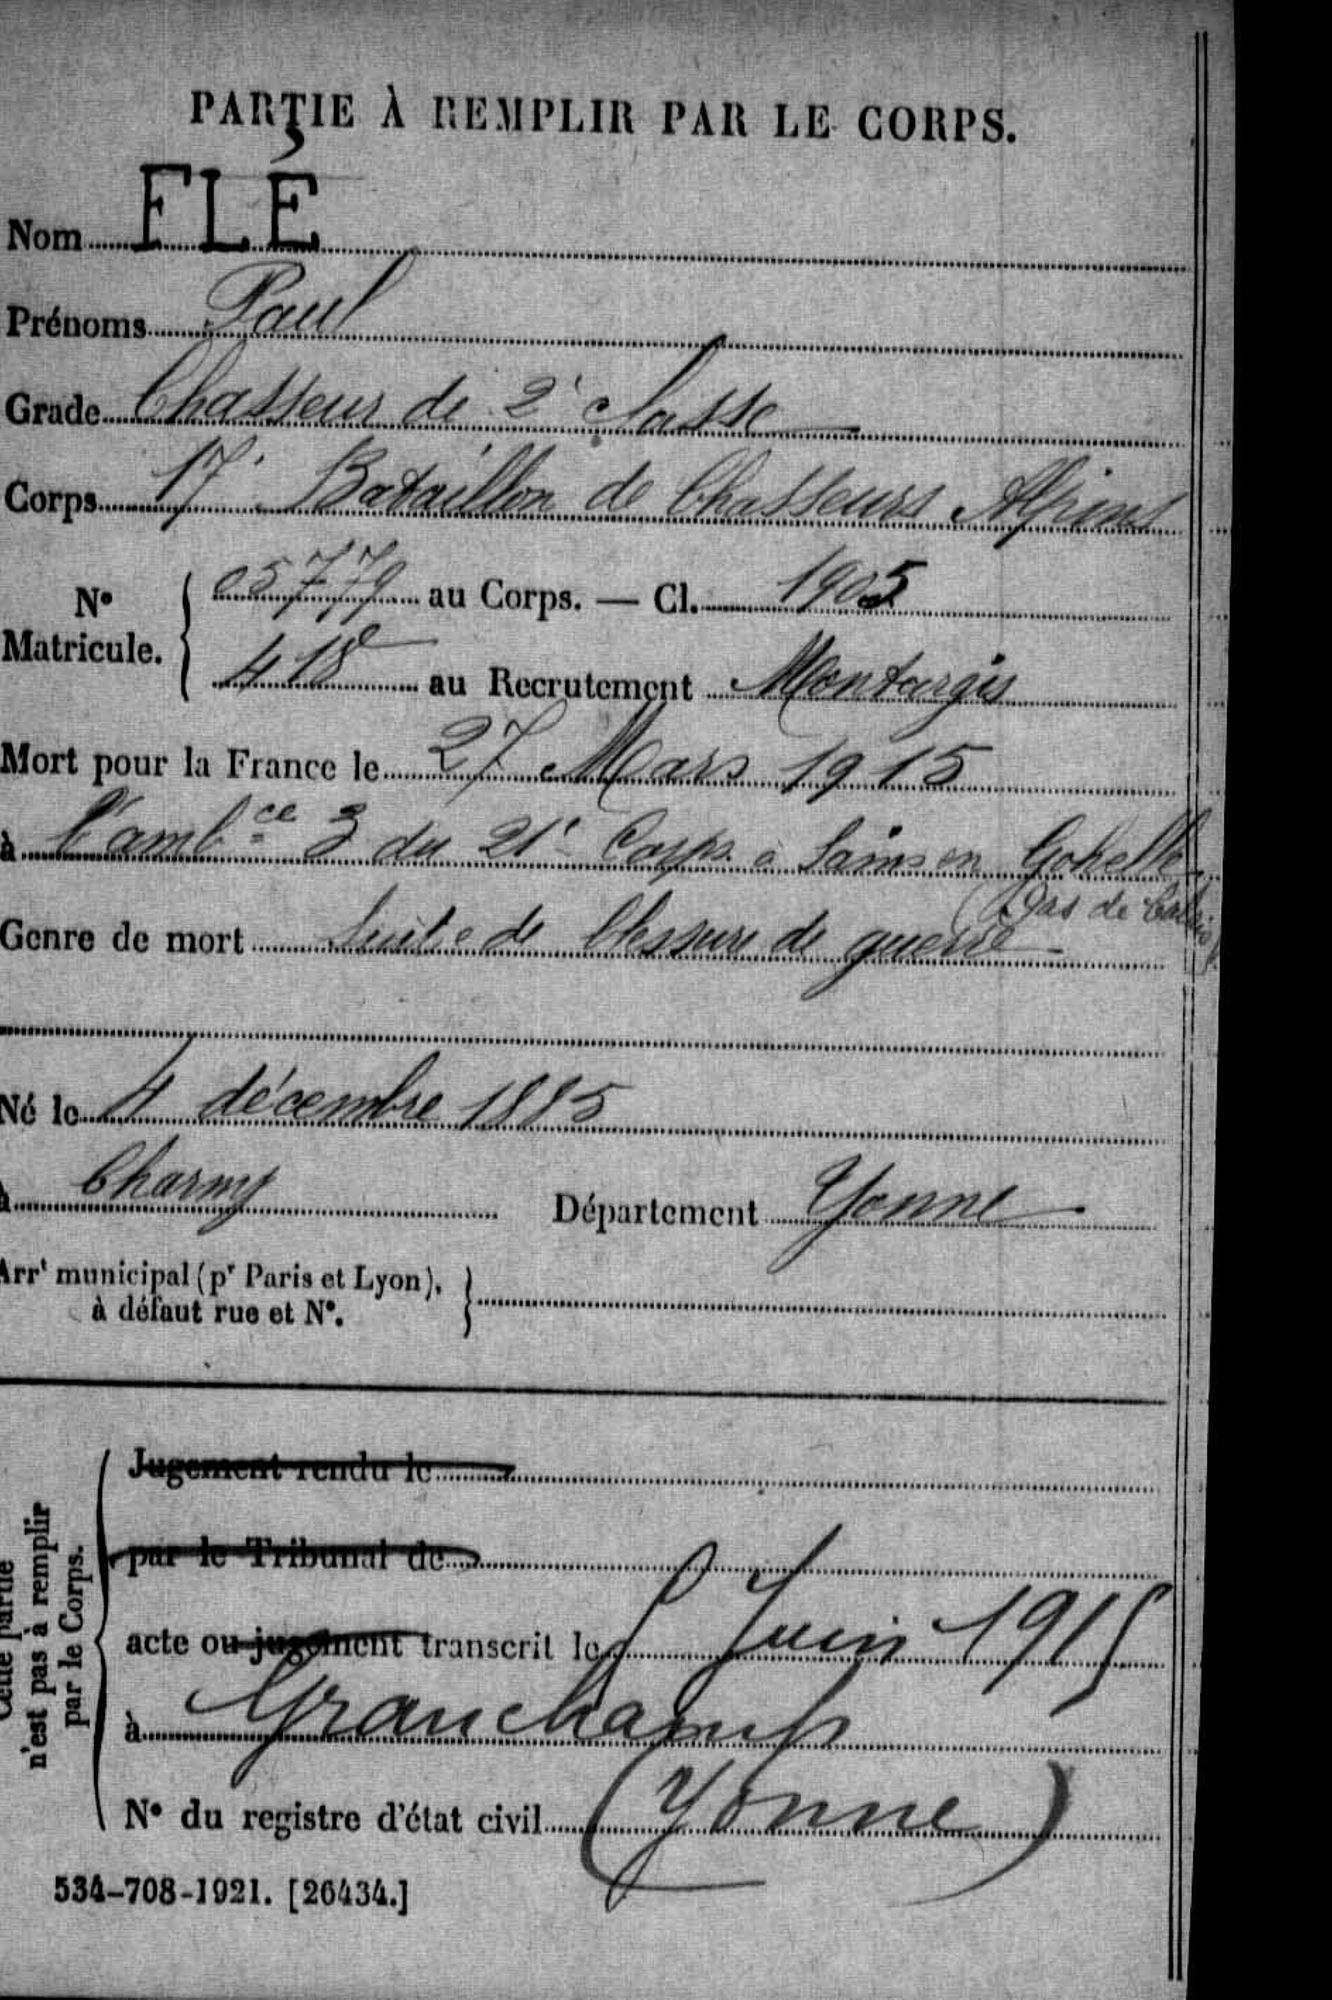 PARTIE À REMPLIR PAR LE CORPS.
Nom FLÉ
Prénoms Paul
Grade Chasseur de 2e classe
Corps 17e Bataillon de Chasseurs Alpins
N° Matricule. 05779 au Corps. — Cl. 1905
418 au Recrutement Montargis
Mort pour la France le 27 Mars 1915
à l'ambce 3 du 21e Corps à Sains en Gohelle
(Pas de Calais)
Genre de mort Suite de blessure de guerre
Né le 4 décembre 1885
à Charny Département Yonne
Arrt municipal (pr Paris et Lyon),
à défaut rue et N°.
Cette partie
n'est pas à remplir
par le Corps.
Jugement rendu le
par le Tribunal de
acte ou jugement transcrit le Juin 1915
à Granchamp
N° du registre d'état civil (Yonne)
534-708-1921. [26434.]